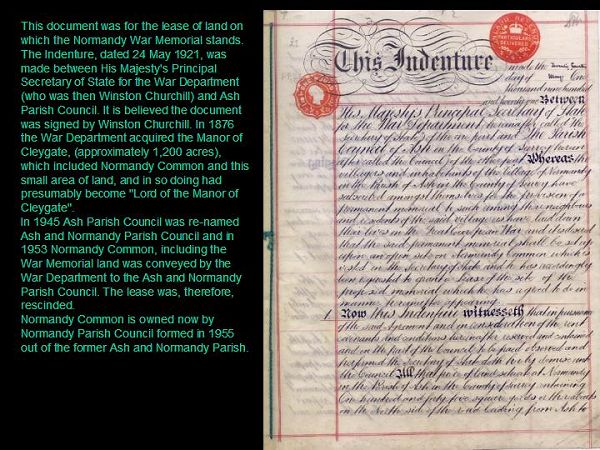 This document was for the lease of land on
which the Normandy War Memorial stands.
The Indenture, dated 24 May 1921, was
made between His Majesty's Principal
Secretary of State for the War Department
(who was then Winston Churchill) and Ash
Parish Council. It is believed the document
was signed by Winston Churchill. In 1876
the War Department acquired the Manor of
Cleygate, (approximately 1,200 acres),
which included Normandy Common and this
small area of land, and in so doing had
presumably become "Lord of the Manor of
Cleygate".
In 1945 Ash Parish Council was re-named
Ash and Normandy Parish Council and in
1953 Normandy Common, including the
War Memorial land was conveyed by the
War Department to the Ash and Normandy
Parish Council. The lease was, therefore,
rescinded.
Normandy Common is owned now by
Normandy Parish Council formed in 1955
out of the former Ash and Normandy Parish.
This Indenture made the
day of May One
thousand nine hundred
and twenty one Between
His Majesty's Principal Secretary of State
for the War Department (hereinafter called the
Secretary of State) of the one part and The Parish
Council of Ash in the County of Surrey herein
after called the Council) of the other part Whereas the
villagers and inhabitants of the Village of Normandy
in the Parish of Ash in the County of Surrey have
subscribed amongst themselves for the provision of a
permanent memorial to such among their neighbours
and residents of the said village as have laid down
their lives in the Great European War and it is desired
that the said permanent memorial shall be set up
upon an open site on Normandy Common which is
vested in the Secretary of State and he has accordingly
been requested to grant a lease of the site of the
proposed memorial which he has agreed to do in
manner hereinafter appearing
1. Now this Indenture witnesseth that in pursuance
of the said Agreement and in consideration of the rent
covenants and conditions hereinafter reserved and contained
and on the part of the Council to be paid observed and
performed the Secretary of State doth hereby demise unto
the Council All that piece of land situate at Normandy
in the Parish of Ash in the County of Surrey containing
One hundred and forty five square yards or thereabouts
on the North side of the road leading from Ash to